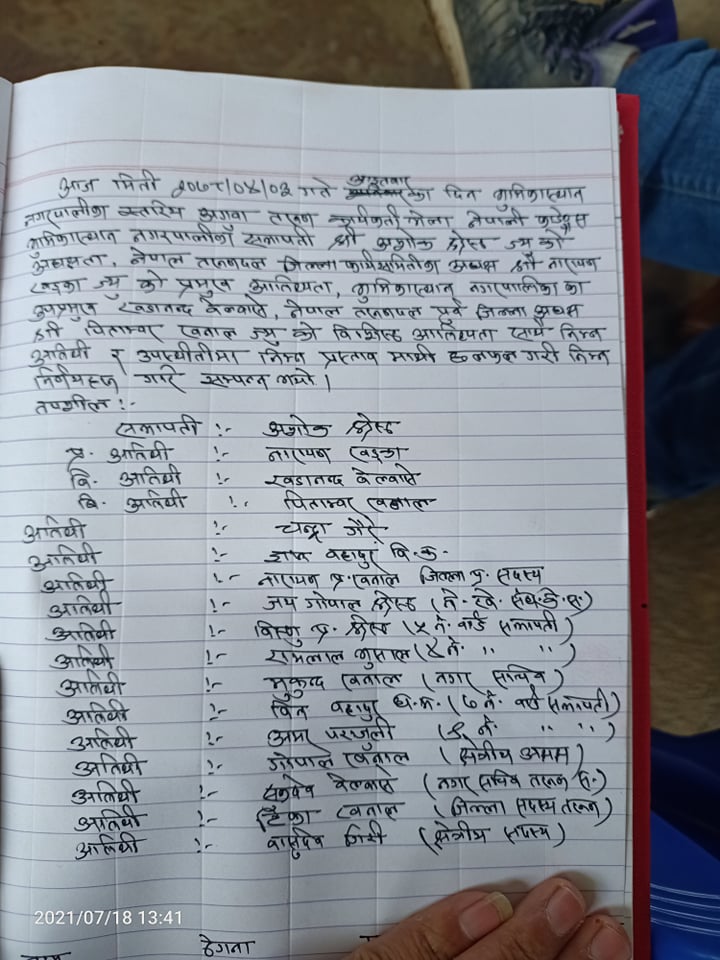 आज मिती २०७८/०४/०३ गते आइतबार का दिन भुमिकास्थान
नगरपालीका स्तरिय अगुवा तरुण कार्यकर्ता भेला नेपाली काङ्ग्रेस
भुमिकास्थान नगरपालीका सभापती श्री अशोक श्रेष्ठ ज्यु को
अध्यक्षता, नेपाल तरुणदल जिल्ला कार्यसमितीका अध्यक्ष श्री नारायण
खड्का ज्यु को प्रमुख आतिथ्यता, भुमिकास्थान नगरपालिका का
उपप्रमुख खडानन्द बेल्वासे, नेपाल तरुणदल पुर्व जिल्ला अध्यक्ष
श्री पिताम्बर खनाल ज्यु को विशिष्ट आतिथ्यता साथै निम्न
अतिथी र उपस्थीतीमा निम्न प्रस्ताव माथी छलफल गरी निम्न
निर्णयहरु गरि सम्पन्न भयो ।
तपशील :-
सभापती :- अशोक श्रेष्ठ
प्र. अतिथी :- नारायण खड्का
वि. अतिथी :- खडानन्द बेल्वासे
बि. अतिथी :- पिताम्बर खनाल
अतिथी :- चन्द्रा जैरे
अतिथी :- ज्ञान बहादुर वि.क.
अतिथी :- नारायण प्र. खनाल जिल्ला पु. सदस्य
अतिथी :- जय गोपाल श्रेष्ठ (ने.
अतिथी :- विष्णु प्र. श्रेष्ठ (५ नं. वार्ड सभापती)
अतिथी :- रामलाल भुसाल (४ नं. ,, ,,)
अतिथी :- मुकुन्द खनाल (नगर सचिव)
अतिथी :- चित्र बहादुर (७ नं. वार्ड सभापती)
अतिथी :- अमर (१ नं. ,, ,,)
अतिथी :- गोपाल खनाल (क्षेत्रीय
अतिथी :- बेल्वासे (नगर सचिव तरुण
अतिथी :- टिका खनाल (जिल्ला सदस्य तरुण)
अतिथी :- वासुदेव गिरी (क्षेत्रीय सदस्य)
2021/07/18 13:41
नाम ठेगना